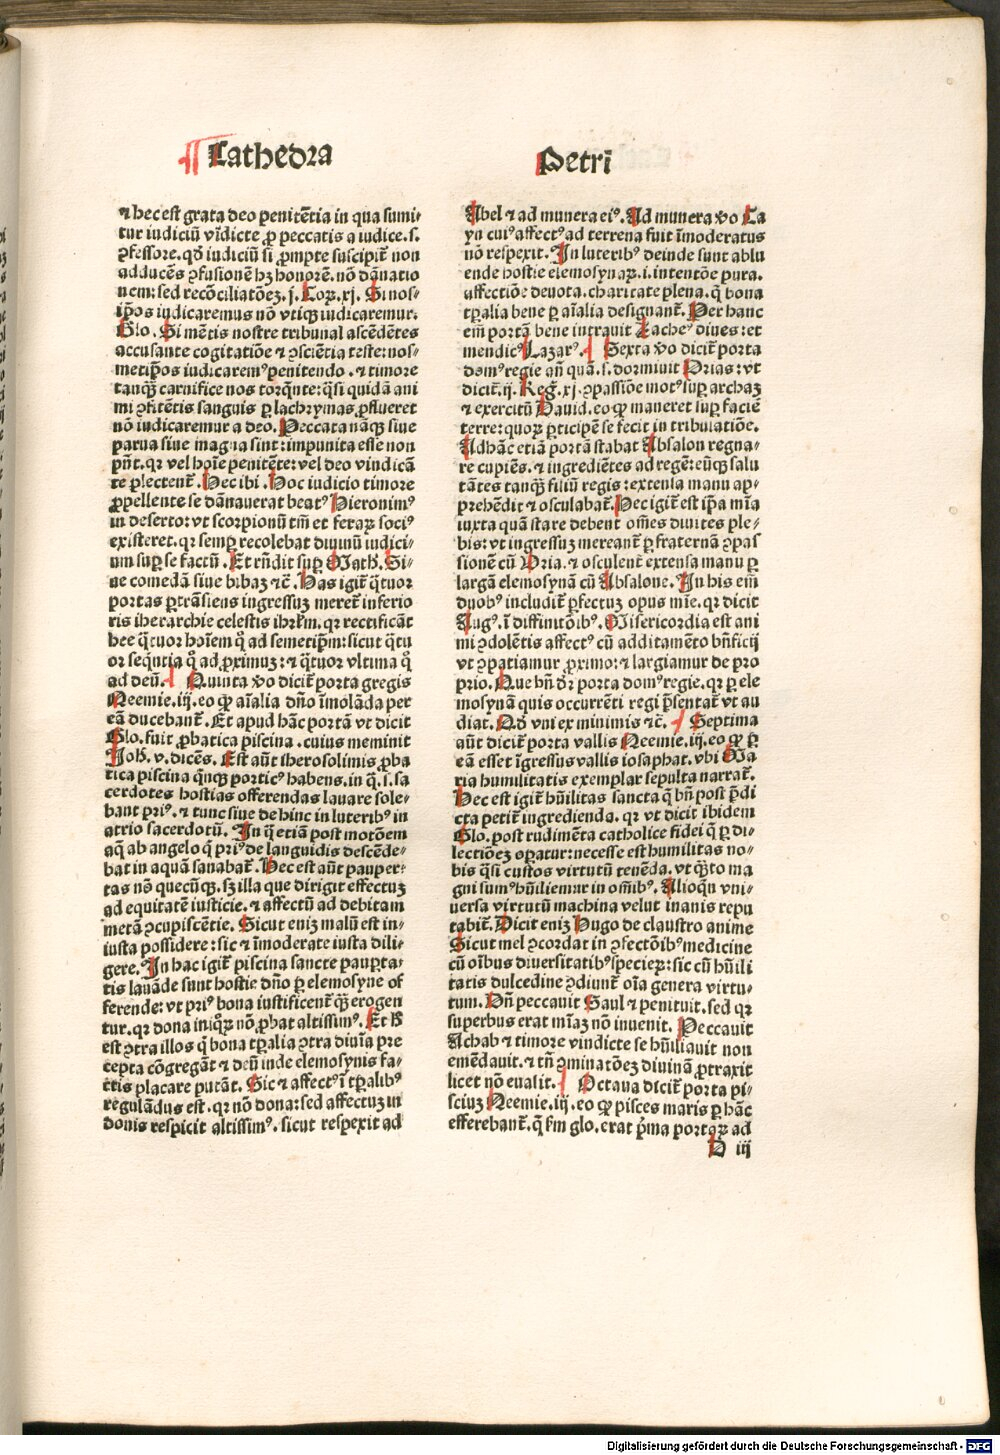 Cathedra
Petri
⁊ hec est grata deo penitētia in qua sumi⸗
tur iudiciū vīdicte ꝓ peccatis a iudice .s.
ꝯfessore. qd̄ iudiciū si ꝓmpte suscipit̄ non
adducēs ꝯfusionē hꝫ honorē. nō dānatio
nem: sed recōciliatōeꝫ .j. Coꝝ. xj. Si nos⸗
ip̄os iudicaremus nō vtiqꝫ iudicaremur.
Glo. Si mētis nostre tribunal ascēdētes
accusante cogitatiōe ⁊ ꝯsciētia teste: nos⸗
metip̄os iudicarem⁹ penitendo. ⁊ timore
tanqꝫ carnifice nos torq̄nte: q̄si quidā ani
mi ꝯfitētis sanguis ꝑ lachrymas ꝓflueret
nō iudicaremur a deo. Peccata nāqꝫ siue
parua siue magna sint: impunita esse non
pn̄t. qꝛ vel hoīe penitēte: vel deo vindicā
te plectent̄. Hec ibi. Hoc iudicio timore
ꝓpellente se dānauerat beat⁹ Hieronim⁹
in deserto: vt scorpionū tm̄ et feraꝝ soci⁹
existeret. qꝛ semꝑ recolebat diuinū iudici⸗
um suꝑ se factū. Et rn̄dit suꝑ Math. Si⸗
ue comedā siue bibaꝫ ⁊c̄. Has igit̄ q̄tuor
portas ꝑtrāsiens ingressuꝫ meret̄ inferio
ris iherarchie celestis ihrl̄m. qꝛ rectificāt
hee q̄tuor hoīem qͦ ad semetip̄m: sicut q̄tu
or seq̄ntia qͦ ad ꝓximuꝫ: ⁊ q̄tuor vltima qͦ
ad deū. Quinta ꝟo dicit̄ porta gregis
Neemie. iij. eo ꝙ aīalia dn̄o īmolāda per
eā ducebant̄. Et apud hāc portā vt dicit
Glo. fuit ꝓbatica piscina. cuius meminit
Joh. v. dicēs. Est aūt iherosolimis ꝓba
tica piscina q̄nqꝫ portic⁹ habens. in q̄ .s. sa
cerdotes hostias offerendas lauare sole⸗
bant pri⁹. ⁊ tunc siue dehinc in luterib⁹ in
atrio sacerdotū. In q̄ etiā post motōem
aq̄ ab angelo q̄ pri⁹ de languidis descēde⸗
bat in aquā sanabat̄. Hec est aūt pauper⸗
tas nō quecūqꝫ. sꝫ illa que dirigit effectuꝫ
ad equitatē iusticie. ⁊ affectū ad debitam
metā ꝯcupiscētie. Sicut eniꝫ malū est in⸗
iusta possidere: sic ⁊ īmoderate iusta dili⸗
gere. In hac igit̄ piscina sancte pauꝑta⸗
tis lauāde sunt hostie dn̄o ꝑ elemosyne of
ferende: vt pri⁹ bona iustificent̄ qꝫ̄ erogen
tur. qꝛ dona iniq̄ꝝ nō ꝓbat altissim⁹. Et ħ
est ꝯtra illos q̄ bona tꝑalia ꝯtra diuīa pre
cepta cōgregāt ⁊ deū inde elemosynis fa⸗
ctis placare putāt. Sic ⁊ affect⁹ ī tꝑalib⁹
regulādus est. qꝛ nō dona: sed affectuꝫ in
donis respicit altissim⁹. sicut respexit ad
Abel ⁊ ad munera ei⁹. Ad munera ꝟo Ca
yn cui⁹ affect⁹ ad terrena fuit īmoderatus
nō respexit. In luterib⁹ deinde sunt ablu
ende hostie elemosynaꝝ .i. intentōe pura.
affectiōe deuota. charitate plena. q̄ bona
tꝑalia bene ꝑ aīalia designant̄. Per hanc
em̄ portā bene intrauit Zache⁹ diues: et
mendic⁹ Lazar⁹. Sexta ꝟo dicit̄ porta
dom⁹ regie an̄ quā .s. dormiuit Vrias: vt
dicit̄ .ij. Reg. xj. ꝯpassiōe mot⁹ suꝑ archaꝫ
⁊ exercitū Dauid. eo ꝙ maneret suꝑ faciē
terre: quoꝝ ꝑticipē se fecit in tribulatiōe.
Ad hāc etiā portā stabat Absalon regna⸗
re cupiēs. ⁊ ingrediētes ad regē: eūqꝫ salu
tātes tanqꝫ filiū regis: extensa manu ap⸗
prehēdit ⁊ osculabat̄. Hec igit̄ est ip̄a mīa
iuxta quā stare debent om̄es diuites ple⸗
bis: vt ingressuꝫ mereant̄ ꝑ fraternā ꝯpas
sionē cū Vria. ⁊ osculent̄ extensa manu ꝑ
largā elemosynā cū Absalone. In his em̄
duob⁹ includit̄ ꝑfectuꝫ opus mīe. qꝛ dicit
Aug⁹. ī diffinitōib⁹. Misericordia est ani
mi ꝯdolētis affect⁹ cū additamēto bn̄ficij
vt ꝯpatiamur ꝓximo: ⁊ largiamur de pro
prio. Que bn̄ dr̄ porta dom⁹ regie. qꝛ ꝑ ele
mosynā quis occurrēti regi p̄sentat̄ vt au
diat. Qd̄ vni ex minimis ⁊c̄. Septima
aūt dicit̄ porta vallis Neemie. iij. eo ꝙ ꝑ
eā esset īgressus vallis iosaphat. vbi Ma
ria humilitatis exemplar sepulta narrat̄.
Hec est igit̄ hūilitas sancta q̄ bn̄ post p̄di
cta petit̄ ingredienda. qꝛ vt dicit ibidem
Glo. post rudimēta catholice fidei q̄ ꝑ di⸗
lectiōeꝫ oꝑatur: necesse est humilitas no⸗
bis q̄si custos virtutū tenēda. vt q̄ꝫto ma
gni sum⁹ hūiliemur in om̄ib⁹. Alioqͥn vni⸗
uersa virtutū machina velut inanis repu
tabit̄. Dicit eniꝫ Hugo de claustro anime
Sicut mel ꝯcordat in ꝯfectōib⁹ medicine
cū oībus diuersitatib⁹ specieꝝ: sic cū hūili
tatis dulcedine ꝯdiunt̄ oīa genera virtu⸗
tum. Dn̄ peccauit Saul ⁊ penituit. sed qꝛ
superbus erat mīaꝫ nō inuenit. Peccauit
Achab ⁊ timore vindicte se hūiliauit non
emēdauit. ⁊ tn̄ ꝯminatōeꝫ diuinā ꝓtraxit
licet nō euasit. Octaua dicit̄ porta pi⸗
sciuꝫ Neemie. iij. eo ꝙ pisces maris ꝑ hāc
efferebant̄. q̄ ẜm glo. erat p̄ma portaꝝ ad
D iij
Digitalisierung gefördert durch die Deutsche Forschungsgemeinschaft - DFG